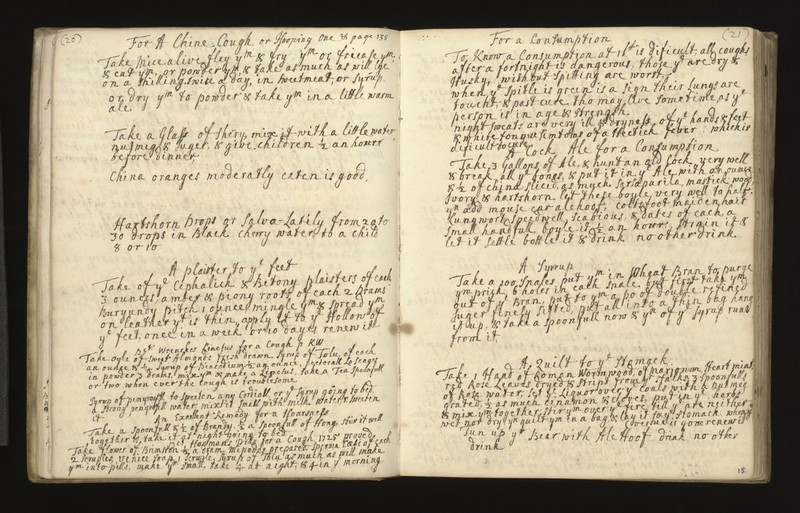 (20)
For A Chine Cough or Hooping one & page 135
Take Mice alive fley ym & dry ym or fricasse ym
& eat ym or powder ym & take as much as will lye
on a shilling twice a day, in sweetmeat, or syrup
or dry ym to powder & take ym in a little warm
ale
Take a Glass of Shery, mix it with a little water
nutmeg & Suger, & give children ½ an hour
before dinner
China oranges moderatly eaten is good.
Hartshorn Drops or Salvo-Latily from 20 to
30 drops in Black cherry water, to a child
8 or 10
A plaister to ye feet
Take of ye Cephalick & Bitony plaisters of each
3 ounces, amber & piony roots of each 2 Drams
Burgundy Pitch 1 ounce mingle ym & spread ym
on leather yt is thin, apply it to ye Hollow of
ye feet once in a week or 10 days, renew it
Dr Wrenches Linctus for a Cough KW
Take oyle of sweet Almonds fresh drawn, Syrup of Tolu, of each
an ounce, & ½ Syrup of Diacodium ½ an ounce,
in powder 3 drams, mix ym & make a Linctus, take a Tea spoonfull
or two when ever the cough is troublesome
Syrup of penyroyll to sweten any Cordill, or ye Syrup going to bed
a strong penyroyll water mixt it full with milk water & sweeten
it
An Excellent Remedy for a Hoarsness
Take a Spoonfull & ½ of Brandy, & a spoonfull of Hony, stir it well
together & take it at night going to bed
Hallmans pills for a Cough 1725 proved
Take flower of Brimston & a dram, Millipodes prepared, Sperme Cati of each
2 scruples, Venice soap 1 scruple, syrup of Tolu as much as will make
ym into pills, make ym small, take 4 at night, & 4 in ye morning
(21)
For a Consumption
To Know a Consumption at 1st is dificult, all coughs
after a fortnight is dangerous, those yt are dry &
Husky, without spitting are worst
when ye spitle is green is a sign their lungs are
toucht & past cure, tho may live sometime as ye
person is in age & strength.
night sweats are very ill, & dryness of ye hands & feet
& white tongue simtoms of a Hectick fever, which is
dificult to cure
A Cock Ale for a Consumption
Take 3 Gallons of Ale, & hunt an old Cock very well
& break all ye bones, & put it in ye Ale with an ounce
& ½ of china sliced, as much Sarsaparila, mastick wood
Ivory & hartshorn, let these boyle very well to half
yn add mouse ear alehoof, coltsfoot maidenhair
Lungwort, Speedwell, Scabious, & dates of each a
small handfull boyle it ½ an hour, Strain it &
let it settle bottle it & drink no other drink
A Syrrup
Take a 100 Snales put ym in Wheat Bran to purge
ym prick 6 holes in each Snale, but first take ym
out of ye Bran, put to ym a po of double refined
Suger finely sifted, put all into a thin bag hang
it up, & take a spoonfull now & yn of ye Syrup runs
from it.
A Quilt to ye Stomack
Take 1 Hand of Roman Wormwood, of marjorum, Heart mint,
red Rose Leaves dryed & stript from ye stalks, 3 spoonfulls
of Rose water, set ye Liquor over ye Coals with a nutmeg
grated, ½ as much cinnamon, & cloves, put in ye herbs
& mix ym together, stir ym over ye fire till ye are neither
wet nor dry, yn quilt ym in a bag, & lay it to ye Stomack when
yn renew it
Tun up ye Beer with Ale Hoof drink no other
drink
15